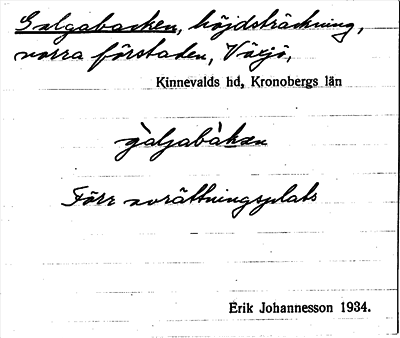 Galgabacken, höjdsträckning,
norra förstaden, Växjö,
Kinnevalds hd, Kronobergs län
gàljabàkan
Förr avrättningsplats
Erik Johannesson 1934.